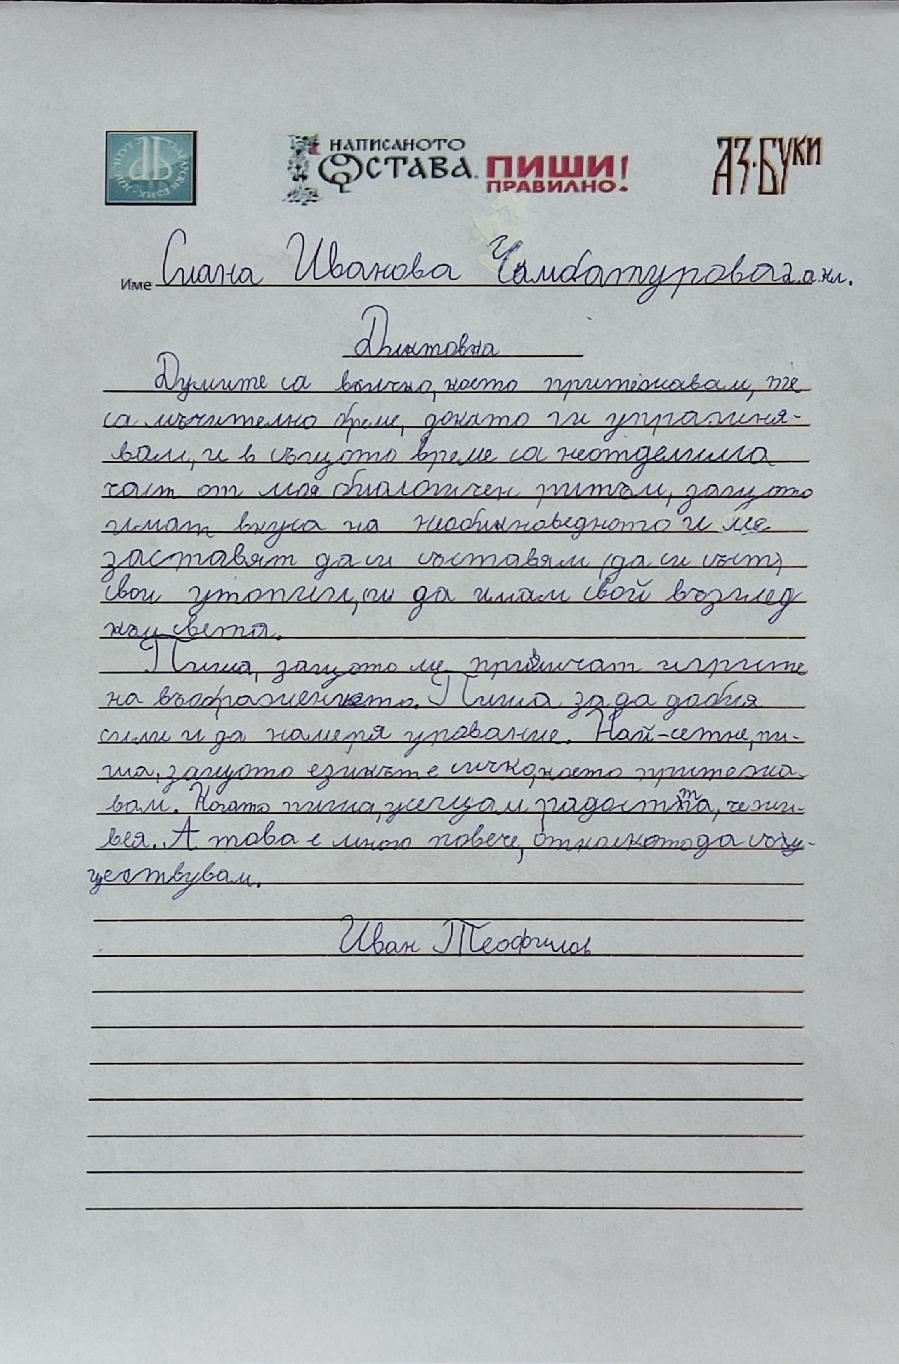 НАПИСАНОТО
ОСТАВА. ПИШИ!
ПРАВИЛНО!
АЗ·БУКИ
Име Сиана Иванова Чамбатурова 2.а кл.
Диктовка
Думите са всичко, което притежавам, те
са мъчително бреме, докато ги упражня-
вам, и в същото време са неотделима
част от моя биологичен ритъм, защото
имат вкуса на необикноведното и ме
заставят да си съставям (да си съст)
свои утопии, и да имам свой възглед
към света.
Пиша, защото ме привличат игрите
на въображението. Пиша за да добия
сили и да намеря упование. Най-сетне, пи-
ша, защото езикът е сичко, което притежа
вам. Когато пиша, усещам радостта, че жи-
вея. А това е много повече, отколкото да съзу-
ществувам.
Иван Теофилов